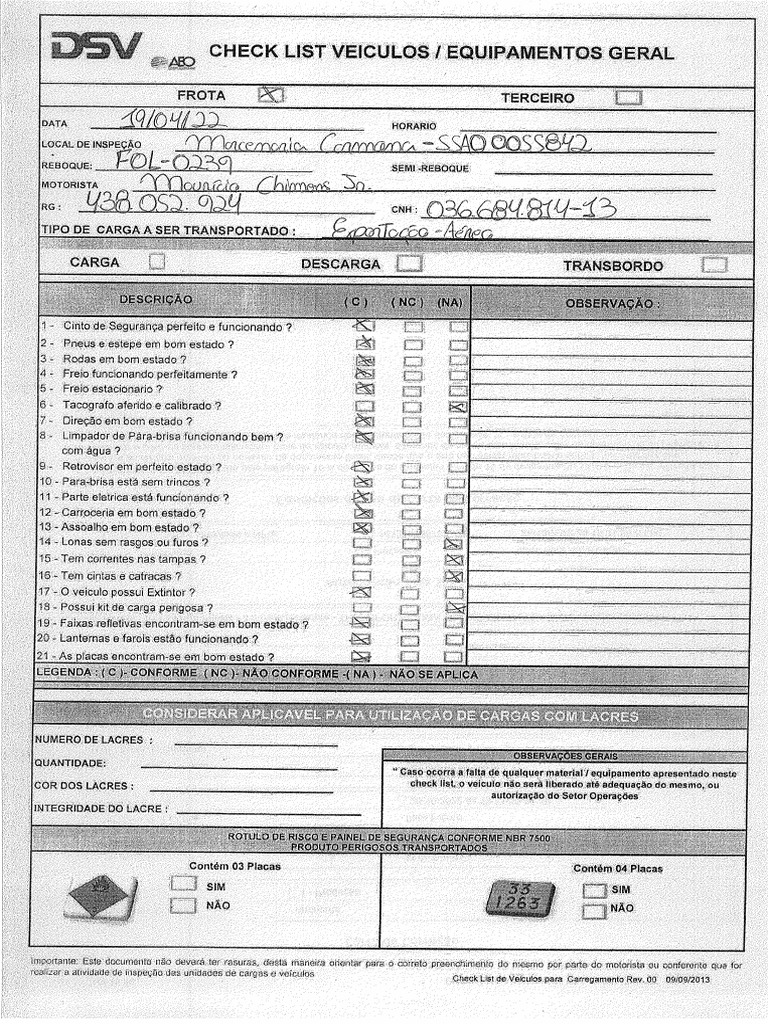 DSV
AEO
CHECK LIST VEICULOS / EQUIPAMENTOS GERAL
FROTA X TERCEIRO
DATA 19/04/22 HORARIO
LOCAL DE INSPEÇÃO - SSA00055842
REBOQUE: FOL-0239 SEMI -REBOQUE
MOTORISTA Maurício Jr.
RG : 438.052.924 CNH : 036.684.814-13
TIPO DE CARGA A SER TRANSPORTADO : Exportação - Aéreo
CARGA DESCARGA TRANSBORDO
DESCRIÇÃO ( C ) ( NC ) (NA) OBSERVAÇÃO :
1 - Cinto de Segurança perfeito e funcionando ? X
2 - Pneus e estepe em bom estado ? X
3 - Rodas em bom estado ? X
4 - Freio funcionando perfeitamente ? X
5 - Freio estacionario ? X
6 - Tacografo aferido e calibrado ? X
7 - Direção em bom estado ? X
8 - Limpador de Pára-brisa funcionando bem ? X
com água ?
9 - Retrovisor em perfeito estado ? X
10 - Para-brisa está sem trincos ? X
11 - Parte eletrica está funcionando ? X
12 - Carroceria em bom estado ? X
13 - Assoalho em bom estado ? X
14 - Lonas sem rasgos ou furos ? X
15 - Tem correntes nas tampas ? X
16 - Tem cintas e catracas ? X
17 - O veiculo possui Extintor ? X
18 - Possui kit de carga perigosa ? X
19 - Faixas refletivas encontram-se em bom estado ? X
20 - Lanternas e farois estão funcionando ? X
21 - As placas encontram-se em bom estado ? X
LEGENDA : ( C )- CONFORME ( NC )- NÃO CONFORME -( NA ) - NÃO SE APLICA
CONSIDERAR APLICAVEL PARA UTILIZAÇÃO DE CARGAS COM LACRES
NUMERO DE LACRES :
QUANTIDADE:
COR DOS LACRES :
INTEGRIDADE DO LACRE :
OBSERVAÇÕES GERAIS
" Caso ocorra a falta de qualquer material / equipamento apresentado neste
check list, o veiculo não será liberado até adequação do mesmo, ou
autorização do Setor Operações
ROTULO DE RISCO E PAINEL DE SEGURANÇA CONFORME NBR 7500
PRODUTO PERIGOSOS TRANSPORTADOS
Contém 03 Placas
SIM
NÃO
Contém 04 Placas
33
1263
SIM
NÃO
Importante: Este documento não deverá ter rasuras, desta maneira orientar para o correto preenchimento do mesmo por parte do motorista ou conferente que for
realizar a atividade de inspeção das unidades de cargas e veículos
Check List de Veículos para Carregamento Rev. 00 09/09/2013